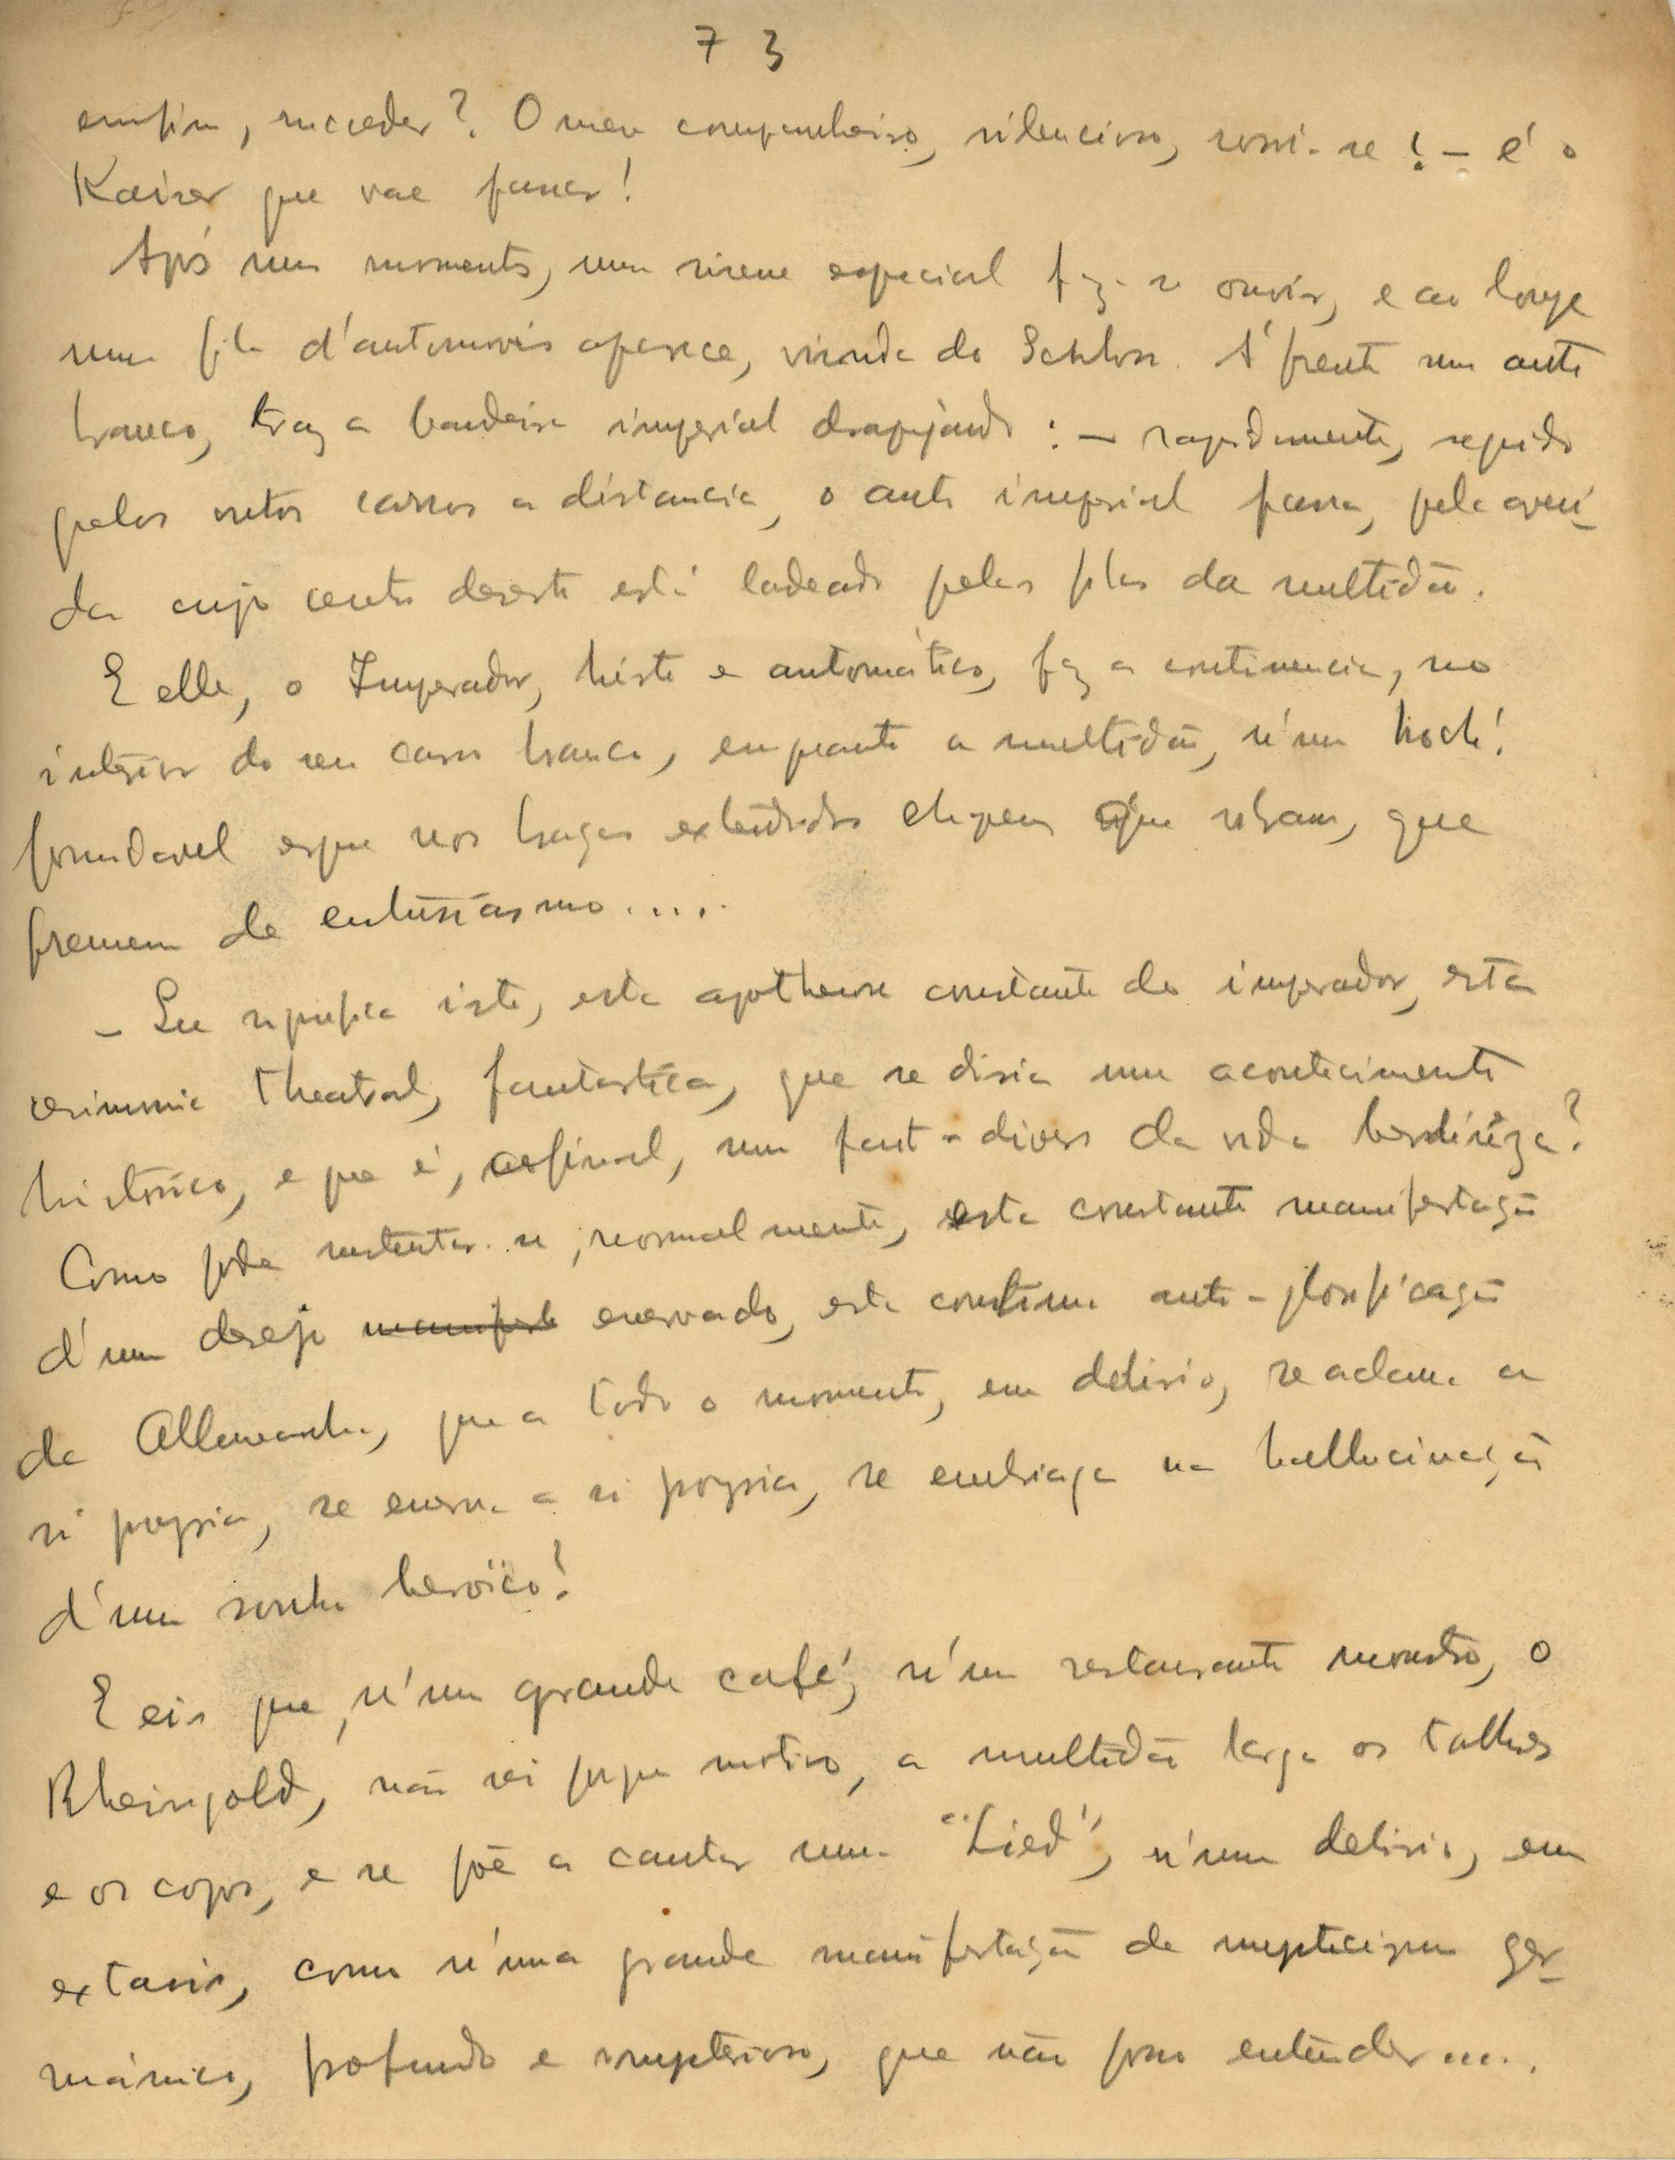 73
emfim, succeder? O meu companheiro, silencioso, sorri-se: – é o
Kaiser que vae passar!
Após um momento, uma sirene especial faz-se ouvir, e ao longe
uma fila d'automoveis aparece, vinda do Schloss. Á frente um auto
branco, traz a bandeira imperial drapejando: – rapidamente, seguido
pelos outros carros a distancia, o auto imperial passa, pela aveni-
da cujo centro deserto está ladeado pelas filas da multidão.
E elle, o Imperador, hirto e automático, faz a continencia, no
interior do seu carro branco, emquanto a multidão, n'um hoch!
formidavel ergue nos braços extendidos chapeus que vibram, que
fremem de entusiásmo....
– Que significa isto, esta apotheose constante do imperador, esta
cerimonia theatral, fantastica, que se diria um acontecimento
historico, e que é, afinal, um faut-divers da vida berlinêza?
Como pode sustentar-se, normalmente, esta constante manifestação
d'um desejo enervado, esta continua auto-glorificação
da Allemanha, que a todo o momento, em delirio, se aclama a
si propria, se enerva a si propria, se embriaga na hallucinação
d'um sonho heroïco!
E eis que, n'um grande café, n'um restaurante monstro, o
Rheingold, não sei porque motivo, a multidão larga os talheres
e os copos, e se põe a cantar um "Lied", n'um delirio, em
extasis, como n'uma grande manifestação de mysticismo ger-
mánico, profundo e mysterioso, que não posso entender....